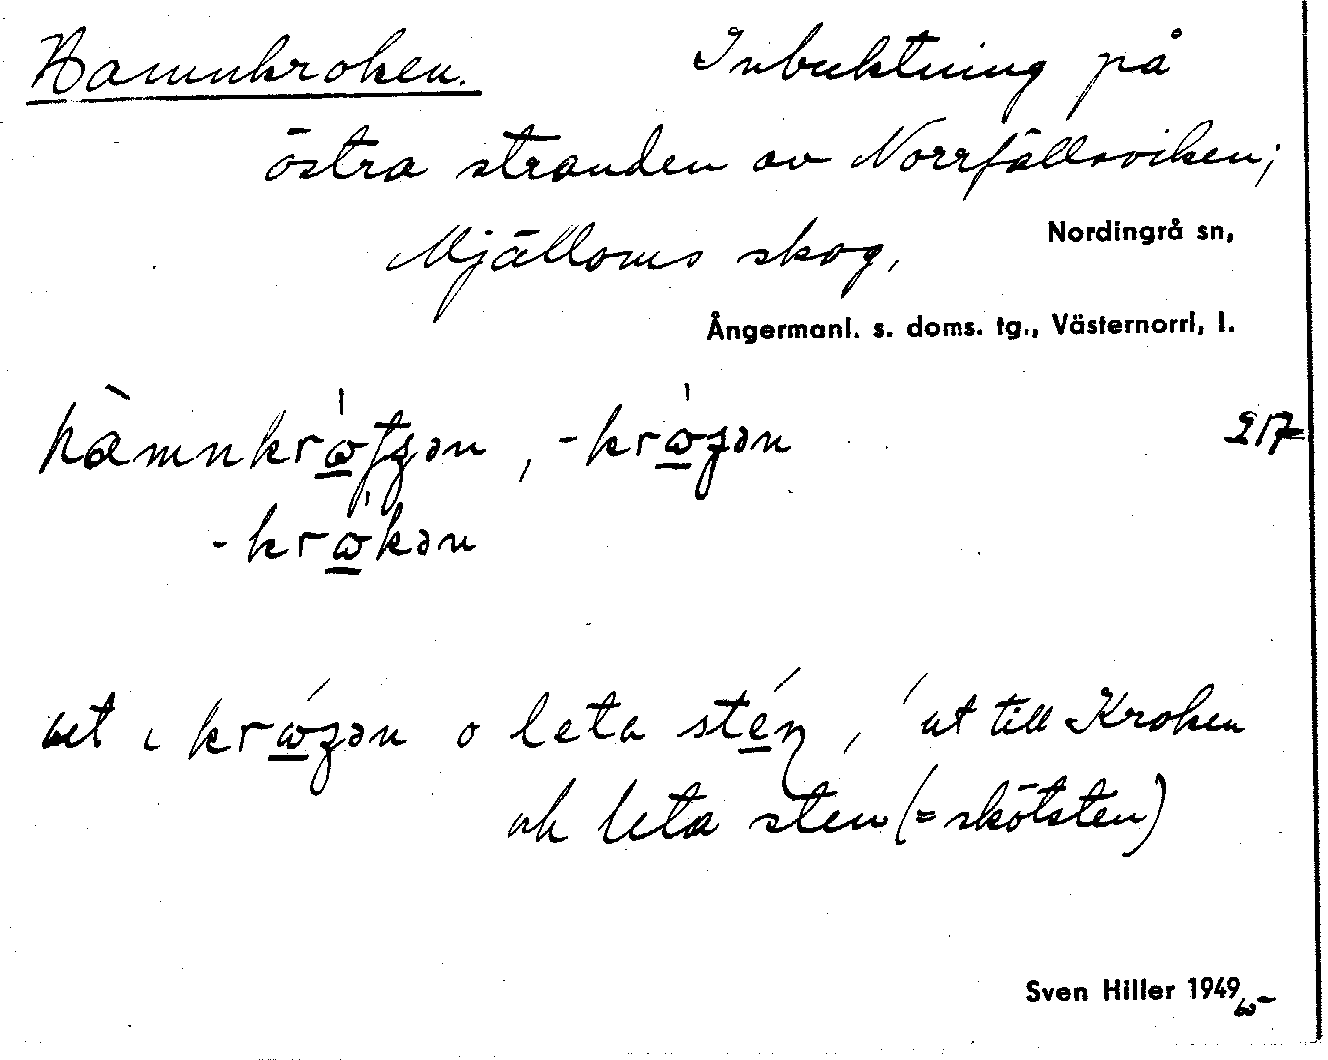 Hamnkroken. Inbuktning på
östra stranden av Norrfällsviken;
Mjälloms skog, Nordingrå sn,
Ångermanl. s. doms. tg., Västernorrl, l.
hàmnkrώ̲tʒən, -krώ̲ʒən 217
-krώ̲kən
ut i krώ̲ʒən o leta sté̲ṇ, 'ut till Kroken
och leta sten (= skötsten)
Sven Hiller 1949